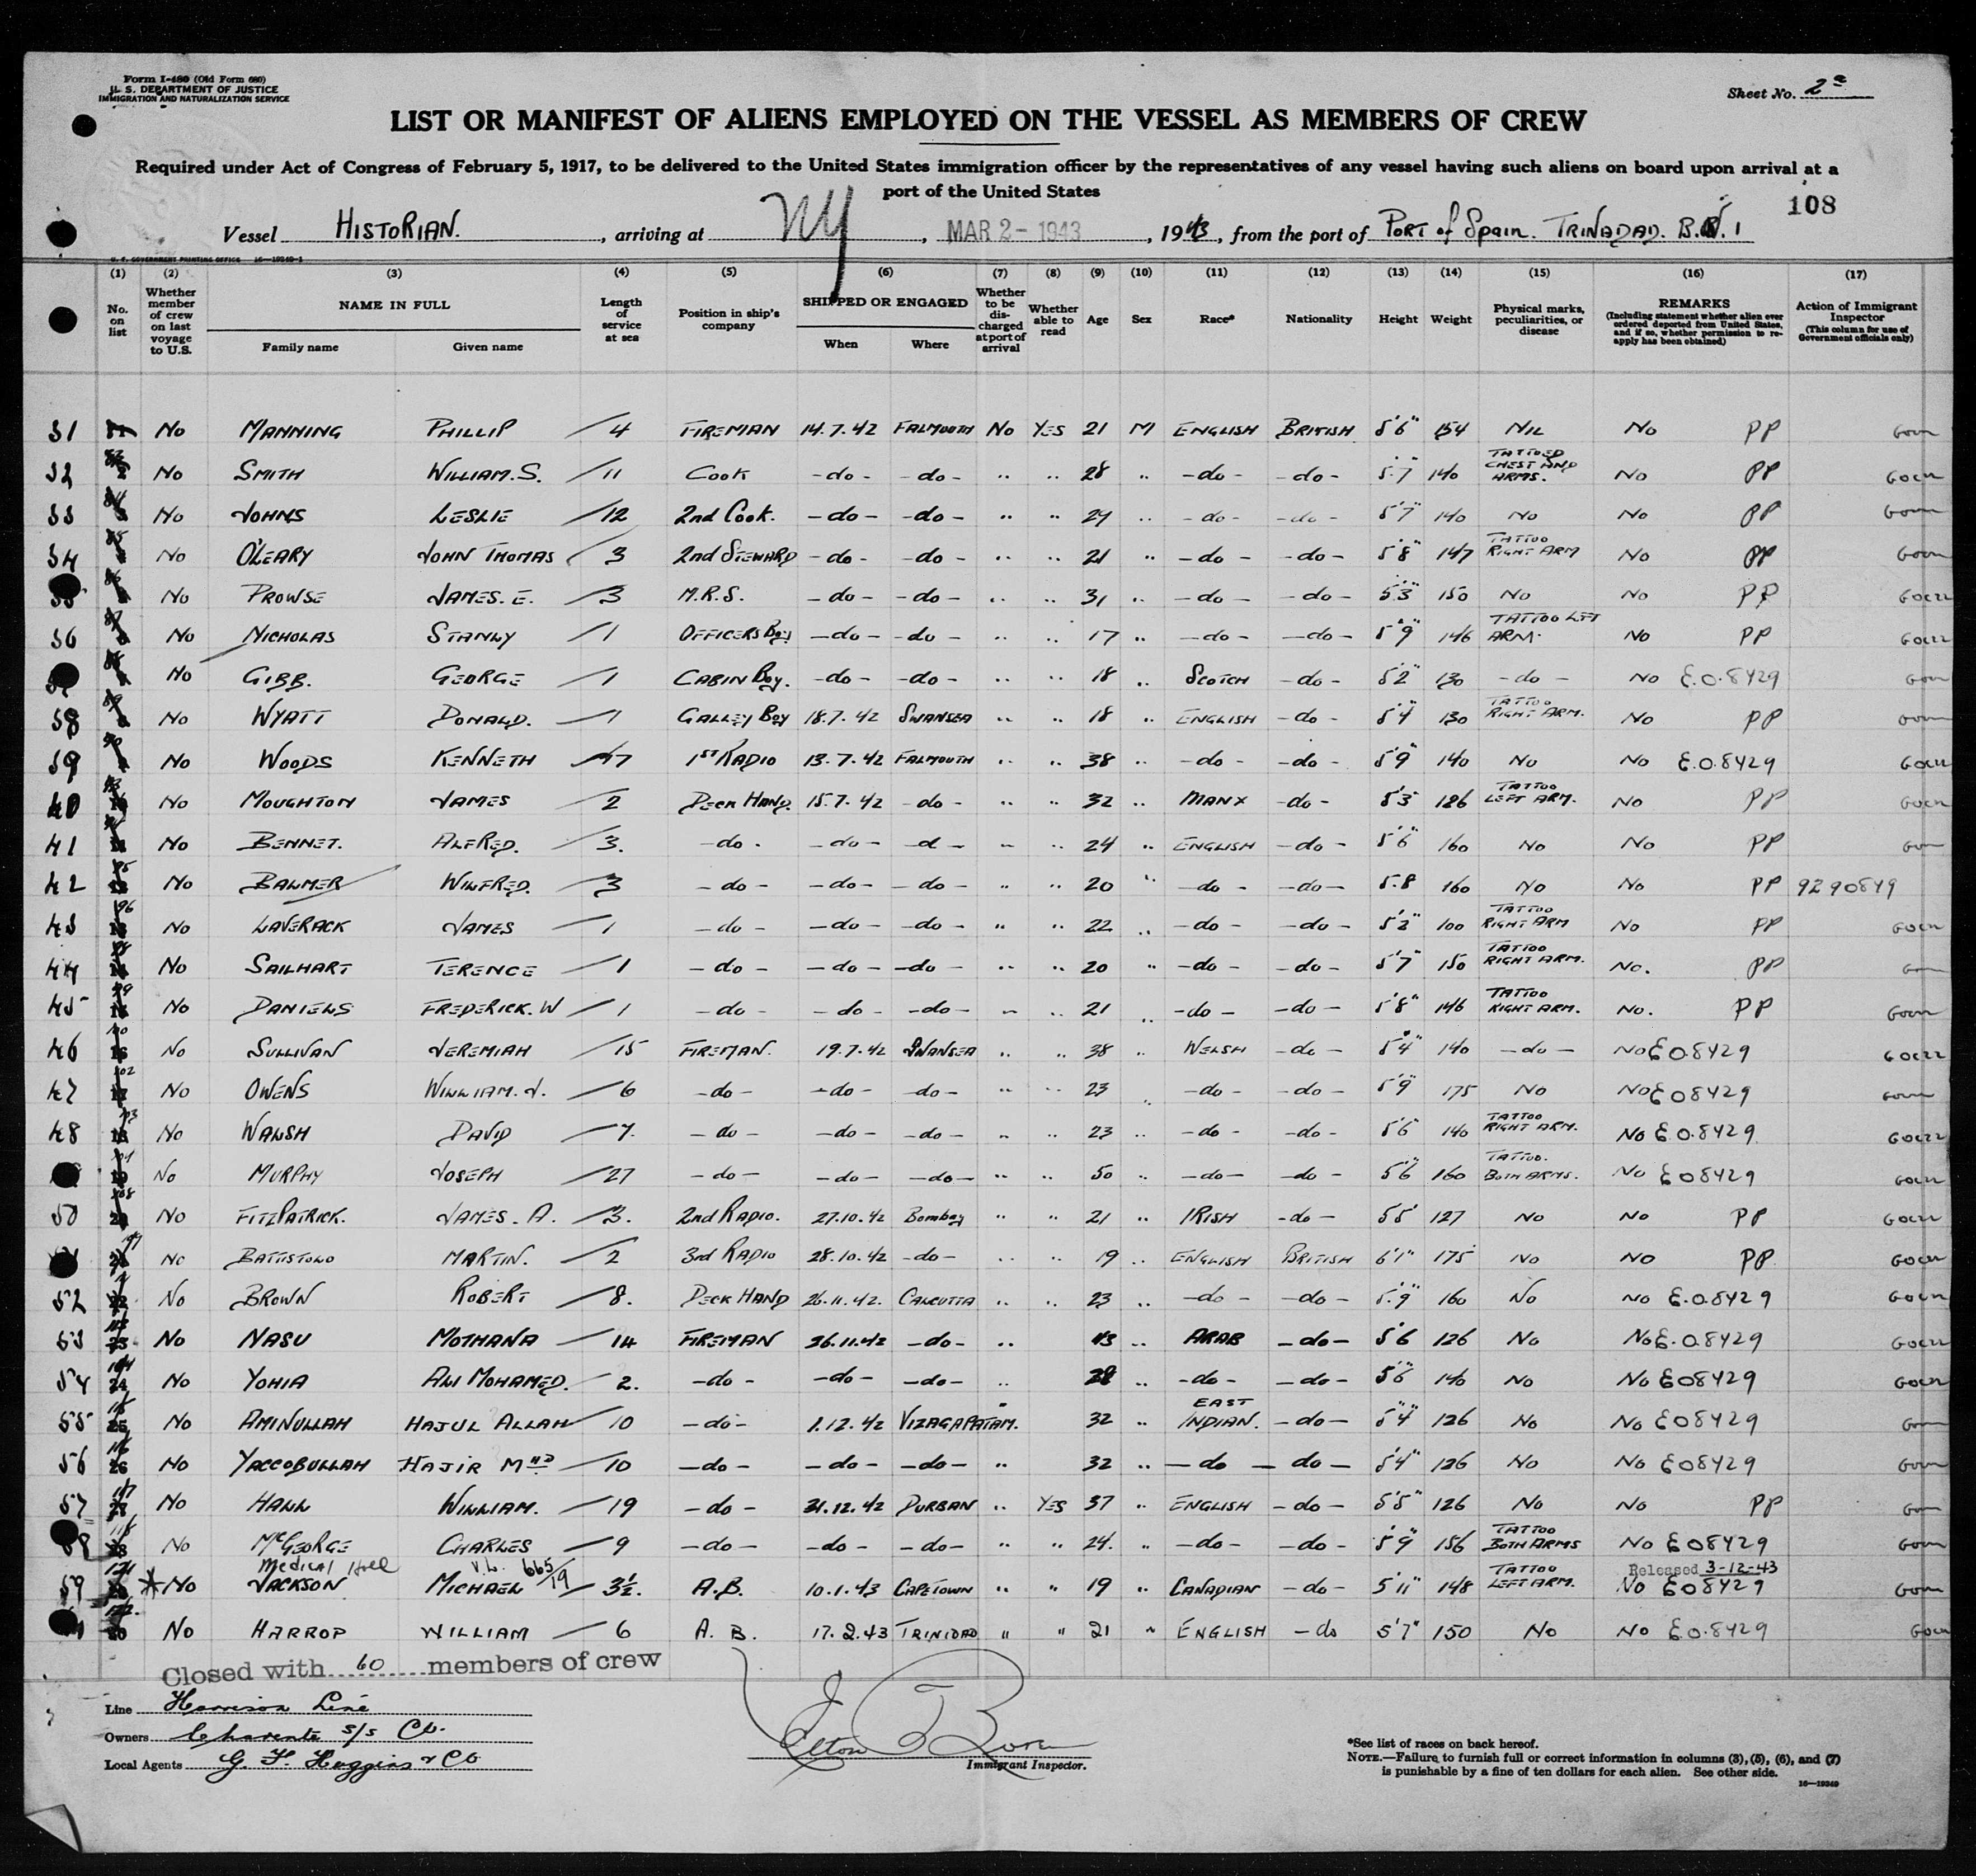 Form I-480 (Old Form 680)
U. S. DEPARTMENT OF JUSTICE
IMMIGRATION AND NATURALIZATION SERVICE
Sheet No. 2
LIST OR MANIFEST OF ALIENS EMPLOYED ON THE VESSEL AS MEMBERS OF CREW
Required under Act of Congress of February 5, 1917, to be delivered to the United States immigration officer by the representatives of any vessel having such aliens on board upon arrival at a
port of the United States
108
Vessel HISTORIAN. , arriving at NY , MAR 2 - 1943 , 1943, from the port of PORT of Spain. TRINADAD. B.W.I
U. S. GOVERNMENT PRINTING OFFICE 16—19349-1
(1) (2) (3) (4) (5) (6) (7) (8) (9) (10) (11) (12) (13) (14) (15) (16) (17)
No. on list
Whether member of crew on last voyage to U.S.
NAME IN FULL
Family name Given name
Length of service at sea
Position in ship's company
SHIPPED OR ENGAGED
When Where
Whether to be discharged at port of arrival
Whether able to read
Age
Sex
Race*
Nationality
Height
Weight
Physical marks, peculiarities, or disease
REMARKS
(Including statement whether alien ever ordered deported from United States, and if so, whether permission to reapply has been obtained)
Action of Immigrant Inspector
(This column for use of Government officials only)
31 No MANNING PHILLIP 4 FIREMAN 14.7.42 FALMOUTH No YES 21 M ENGLISH BRITISH 5'6" 154 NIL No PP
32 No SMITH WILLIAM.S. 11 COOK -do- -do- " " 28 " -do- -do- 5'7 140 TATTOED CHEST AND ARMS. No PP
33 No JOHNS LESLIE 12 2nd Cook. -do- -do- " " 29 " -do- -do- 5'7" 140 No No PP
34 No O'LEARY JOHN THOMAS 3 2nd STEWARD -do- -do- " " 21 " -do- -do- 5'8" 147 TATTOO RIGHT ARM No PP
35 No PROWSE JAMES. E. 3 M.R.S. -do- -do- " " 31 " -do- -do- 5'3" 150 No No PP
36 No NICHOLAS STANLY 1 OFFICERS Boy -do- -do- " " 17 " -do- -do- 5'9" 146 TATTOO LEFT ARM. No PP
No GIBB. GEORGE 1 CABIN Boy. -do- -do- " " 18 " SCOTCH -do- 5'2" 130 -do- No E.O.8429
38 No WYATT DONALD. 1 GALLEY BOY 18.7.42 SWANSEA " " 18 " ENGLISH -do- 5'4" 130 TATTOO RIGHT ARM. No PP
39 No WOODS KENNETH 17 1ST RADIO 13.7.42 FALMOUTH " " 38 " -do- -do- 5'9" 140 No No E.O.8429
40 No MOUGHTON JAMES 2 DECK HAND. 15.7.42 -do- " " 32 " MANX -do- 5'3" 126 TATTOO LEFT ARM. No PP
41 No BENNET. ALFRED. 3. -do- -do- -d- " " 24 " ENGLISH -do- 5'6" 160 No No PP
42 No BALMER WILFRED. 3 -do- -do- -do- " " 20 " -do- -do- 5.8 160 No No PP 9290849
43 No LAVERACK JAMES 1 -do- -do- -do- " " 22 " -do- -do- 5'2" 100 TATTOO RIGHT ARM No PP
44 No SAILHART TERENCE 1 -do- -do- -do- " " 20 " -do- -do- 5'7" 150 TATTOO RIGHT ARM. No. PP
45 No DANIELS FREDERICK.W 1 -do- -do- -do- " " 21 " -do- -do- 5'8" 146 TATTOO RIGHT ARM. No. PP
46 No SULLIVAN JEREMIAH 15 FIREMAN. 19.7.42 SWANSEA " " 38 " WELSH -do- 5'4" 140 -do- No E08429
47 No OWENS WILLIAM.J. 6 -do- -do- -do- " " 23 -do- -do- 5'9" 175 No No E08429
48 No WALSH DAVID 7. -do- -do- -do- " " 23 " -do- -do- 5'6" 140 TATTOO RIGHT ARM. No E.0.8429
No MURPHY JOSEPH 27 -do- -do- -do- " " 50 " -do- -do- 5'6" 160 TATTOO. BOTH ARMS. No E08429
50 No FITZPATRICK. JAMES. A. 3. 2nd RADIO. 27.10.42 Bombay " " 21 " IRISH -do- 5'5" 127 No No PP
No BATTISTOLO MARTIN. 2 3rd RADIO 28.10.42 -do- " " 19 " ENGLISH BRITISH 6'1" 175 No NO PP
52 No BROWN ROBERT 8. DECK HAND 26.11.42. CALCUTTA " " 23 " -do- -do- 5'9" 160 No No E.0.8429
53 No NASU MOTHANA 14 FIREMAN 26.11.42 -do- " 43 " ARAB -do- 5'6 126 No No E.08429
54 No YOHIA ALI MOHAMED. 2. -do- -do- -do- " 28 " -do- -do- 5'6" 140 No No E08429
55 No AMINULLAH HAJUL ALLAH 10 -do- 1.12.42 VIZAGAPATAM. 32 " EAST INDIAN. -do- 5'4" 126 No No E08429
56 No YACCOBULLAH HAJIR MHD 10 -do- -do- -do- " 32 " -do- -do- 5'4" 126 No No E08429
57 No HALL WILLIAM. 19 -do- 31.12.42 DURBAN " YES 37 " ENGLISH -do- 5'5" 126 No No PP
58 No McGEORGE CHARLES 9 -do- -do- -do- " " 24. " -do- -do- 5'9" 156 TATTOO BOTH ARMS No E08429
Medical Hold V.L. 665/19 Released 3-12-43
59 *No JACKSON MICHAEL 3½. A.B. 10.1.43 CAPETOWN " " 19 " CANADIAN -do- 5'11" 148 TATTOO LEFT ARM. No E08429
No HARROP WILLIAM 6 A. B. 17.2.43 TRINIDAD " " 21 " ENGLISH -do 5'7" 150 No No E0.8429
Closed with 60 members of crew
Line Harrison Line
Owners Charente s/s Co.
Local Agents G. F. Huggins & Co
Elton
Immigrant Inspector.
*See list of races on back hereof.
NOTE.—Failure to furnish full or correct information in columns (3), (5), (6), and (7)
is punishable by a fine of ten dollars for each alien. See other side.
16—19349